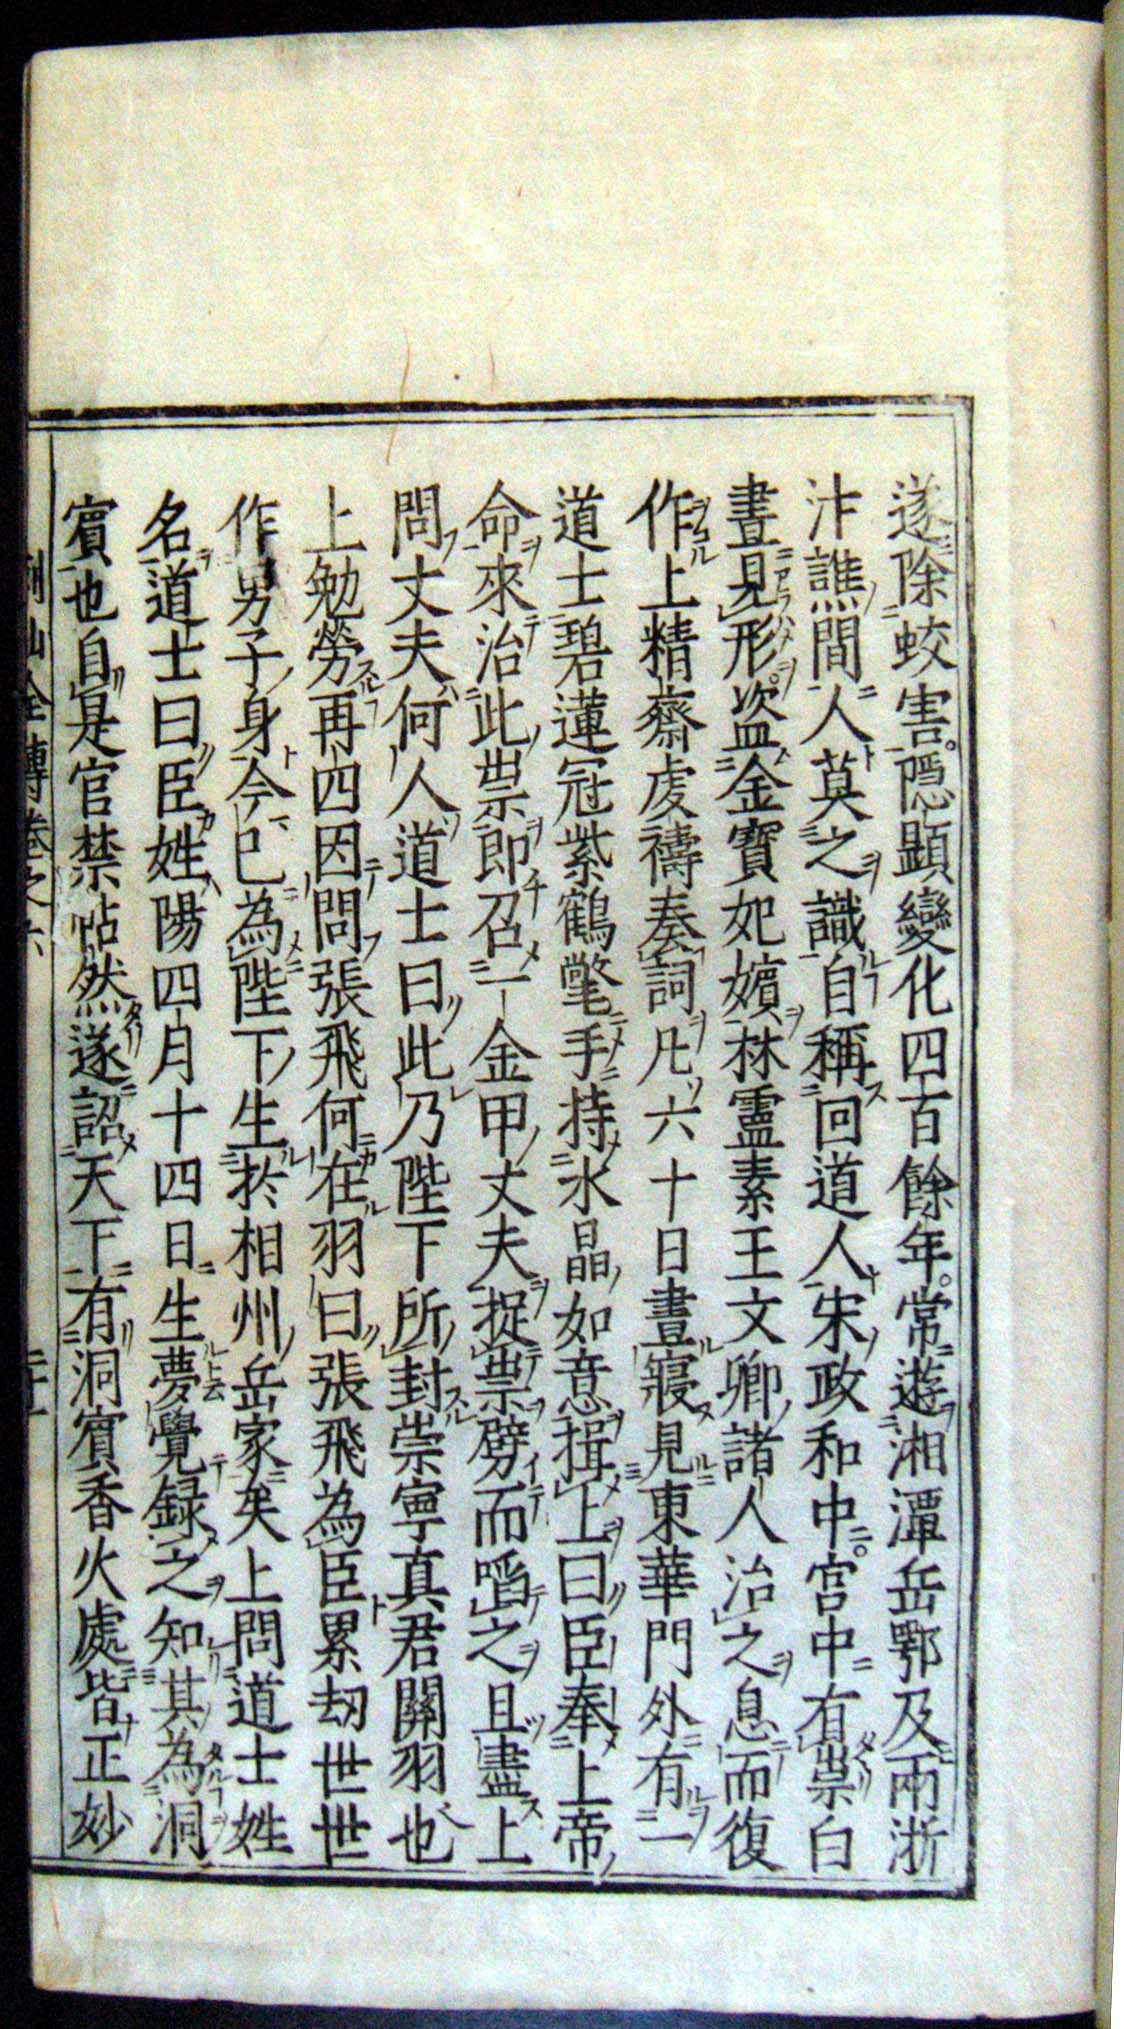 遂除蛟害。隱顯變化四百餘年。常遊湘潭岳鄂及兩浙
汴譙間人莫之識自稱回道人宋政和中。宮中有祟白
晝見形盗金寶妃嬪林靈素王文卿諸人治之息而復
作上精齋虔禱奏詞凡六十日晝寢見東華門外有一
道士碧蓮冠紫鶴氅手持水晶如意揖上曰臣奉上帝
命來治此祟即召一金甲丈夫捉祟劈而啗之且盡上
問丈夫何人道士曰此乃陛下所封崇寧真君關羽也
上勉勞再四因問張飛何在羽曰張飛為臣累刧世世
作男子身今已為陛下生於相州岳家矣上問道士姓
名道士曰臣姓陽四月十四日生夢覺録之知其為洞
賓也自是官禁帖然遂詔天下有洞賓香火處皆正妙
全傳卷之六